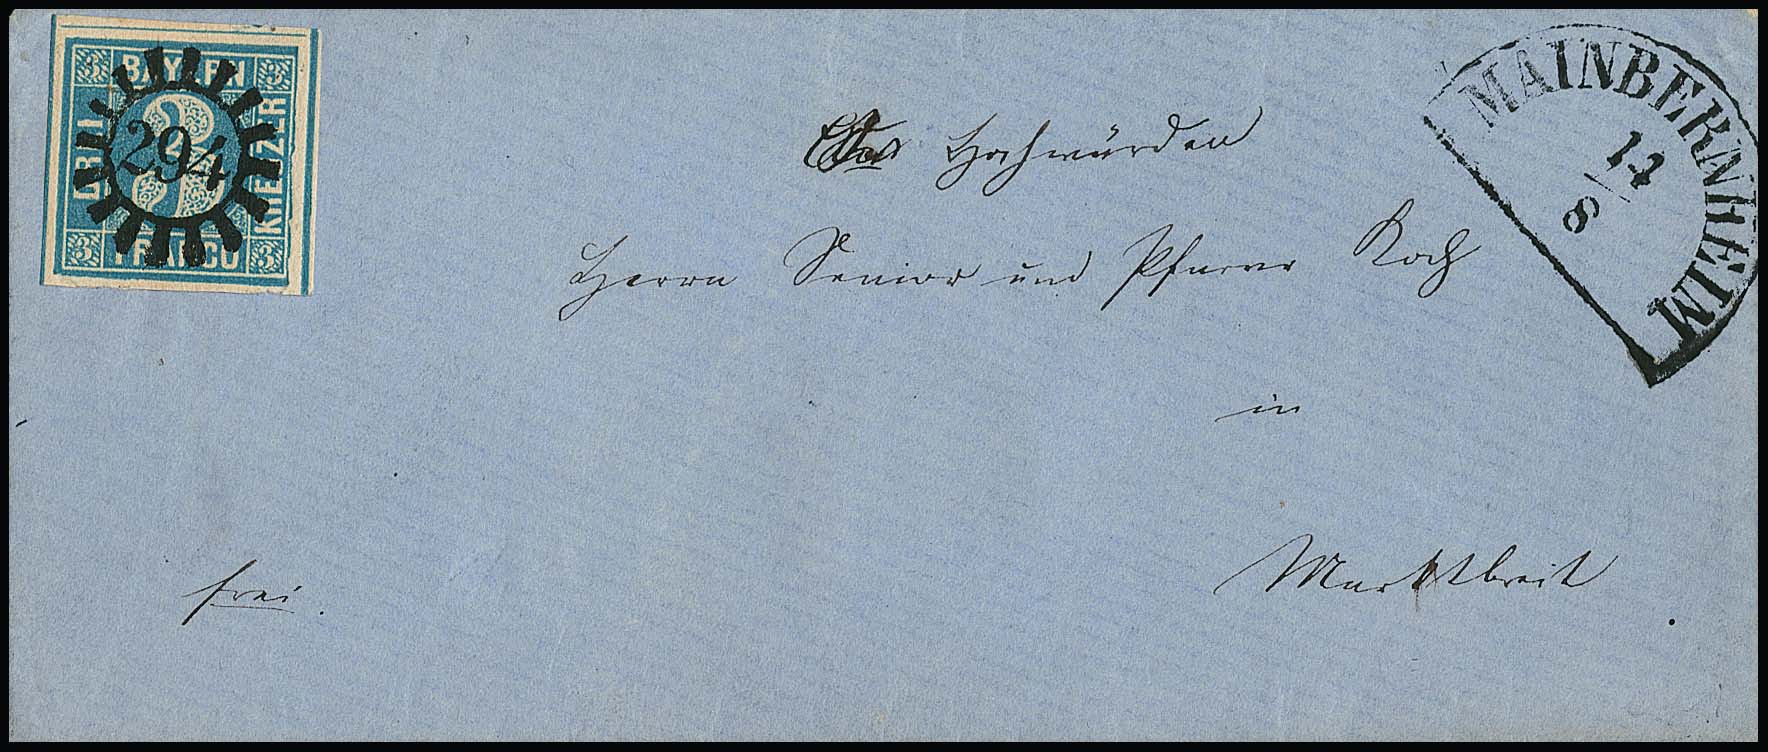 3 BAYERN 3
DREI
3
KREUZER
3 FRANCO 3
294
MAINBERNHEIM
14
8
Hochwürden
Herrn Senior und Pfarrer Koch
in
frei.
Marktbreit